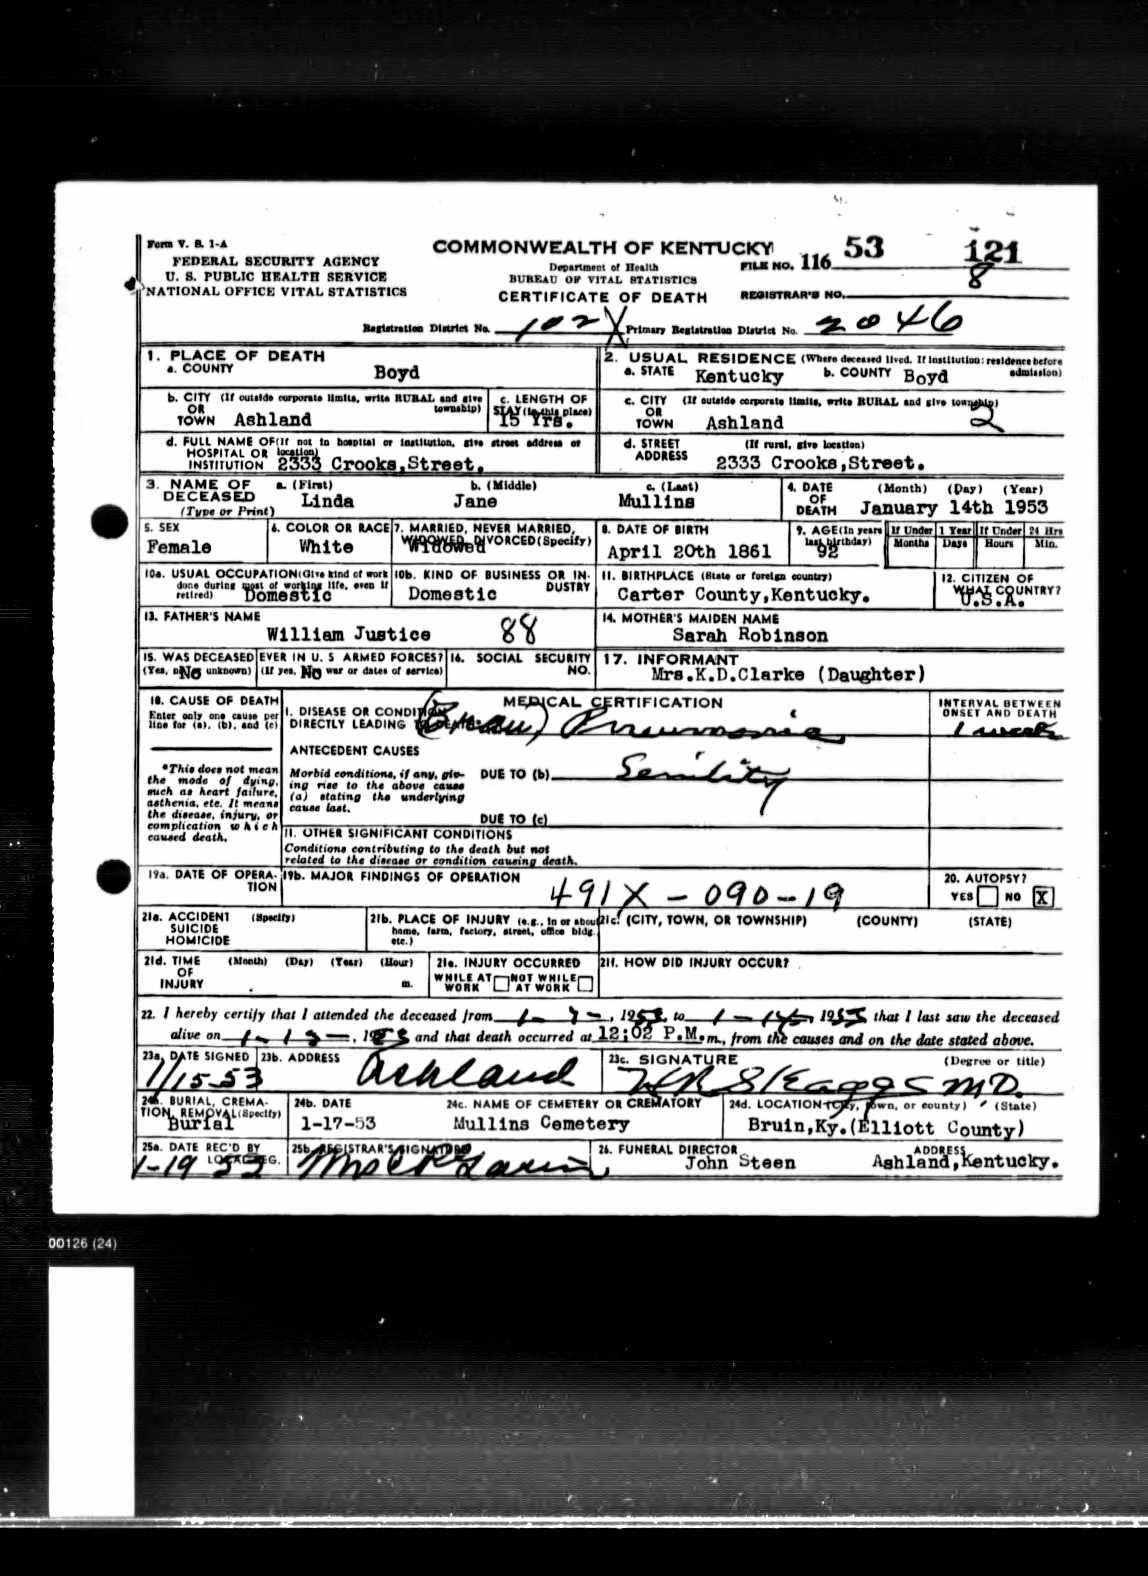 Form V. S. 1-A
FEDERAL SECURITY AGENCY
U. S. PUBLIC HEALTH SERVICE
NATIONAL OFFICE VITAL STATISTICS
COMMONWEALTH OF KENTUCKY
Department of Health
BUREAU OF VITAL STATISTICS
CERTIFICATE OF DEATH
FILE NO. 116 53 121
8
REGISTRAR'S NO.
Registration District No. 102X Primary Registration District No. 2046
1. PLACE OF DEATH
a. COUNTY Boyd
2. USUAL RESIDENCE (Where deceased lived. If institution: residence before admission)
a. STATE Kentucky b. COUNTY Boyd
b. CITY (If outside corporate limits, write RURAL and give township)
OR
TOWN Ashland
c. LENGTH OF STAY (in this place)
15 Yrs.
c. CITY (If outside corporate limits, write RURAL and give township)
OR
TOWN Ashland 2
d. FULL NAME OF (If not in hospital or institution, give street address or location)
HOSPITAL OR
INSTITUTION 2333 Crooks,Street.
d. STREET ADDRESS (If rural, give location)
2333 Crooks,Street.
3. NAME OF DECEASED (Type or Print)
a. (First) b. (Middle) c. (Last)
Linda Jane Mullins
4. DATE OF DEATH (Month) (Day) (Year)
January 14th 1953
5. SEX
Female
6. COLOR OR RACE
White
7. MARRIED, NEVER MARRIED, WIDOWED, DIVORCED (Specify)
Widowed
8. DATE OF BIRTH
April 20th 1861
9. AGE (In years last birthday)
92
If Under 1 Year If Under 24 Hrs
Months Days Hours Min.
10a. USUAL OCCUPATION (Give kind of work done during most of working life, even if retired)
Domestic
10b. KIND OF BUSINESS OR INDUSTRY
Domestic
11. BIRTHPLACE (State or foreign country)
Carter County,Kentucky.
12. CITIZEN OF WHAT COUNTRY?
U.S.A.
13. FATHER'S NAME
William Justice 88
14. MOTHER'S MAIDEN NAME
Sarah Robinson
15. WAS DECEASED EVER IN U. S ARMED FORCES?
(Yes, no, unknown) No (If yes, war or dates of service) No
16. SOCIAL SECURITY NO.
17. INFORMANT
Mrs.K.D.Clarke (Daughter)
18. CAUSE OF DEATH
Enter only one cause per line for (a), (b), and (c)
*This does not mean the mode of dying, such as heart failure, asthenia, etc. It means the disease, injury, or complication which caused death.
MEDICAL CERTIFICATION
I. DISEASE OR CONDITION DIRECTLY LEADING TO DEATH (Bron) Pneumonia
INTERVAL BETWEEN ONSET AND DEATH
1 week
ANTECEDENT CAUSES
Morbid conditions, if any, giving rise to the above cause (a) stating the underlying cause last.
DUE TO (b) Senility
DUE TO (c)
II. OTHER SIGNIFICANT CONDITIONS
Conditions contributing to the death but not related to the disease or condition causing death.
19a. DATE OF OPERATION
19b. MAJOR FINDINGS OF OPERATION
491X - 090 - 19
20. AUTOPSY?
YES NO X
21a. ACCIDENT (Specify)
SUICIDE
HOMICIDE
21b. PLACE OF INJURY (e.g., in or about home, farm, factory, street, office bldg. etc.)
21c. (CITY, TOWN, OR TOWNSHIP) (COUNTY) (STATE)
21d. TIME OF INJURY (Month) (Day) (Year) (Hour) m.
21e. INJURY OCCURRED
WHILE AT WORK NOT WHILE AT WORK
21f. HOW DID INJURY OCCUR?
22. I hereby certify that I attended the deceased from 1-7-, 1953, to 1-14-, 1953 that I last saw the deceased
alive on 1-13-, 1953 and that death occurred at 12:02 P.M.m., from the causes and on the date stated above.
23a. DATE SIGNED
1/15 53
23b. ADDRESS
Ashland
23c. SIGNATURE (Degree or title)
HR Skaggs MD.
24a. BURIAL, CREMATION, REMOVAL (Specify)
Burial
24b. DATE
1-17-53
24c. NAME OF CEMETERY OR CREMATORY
Mullins Cemetery
24d. LOCATION (City, town, or county) (State)
Bruin,Ky.(Elliott County)
25a. DATE REC'D BY LOCAL REG.
1-19 53
25b. REGISTRAR'S SIGNATURE
26. FUNERAL DIRECTOR ADDRESS
John Steen Ashland,Kentucky.
00126 (24)